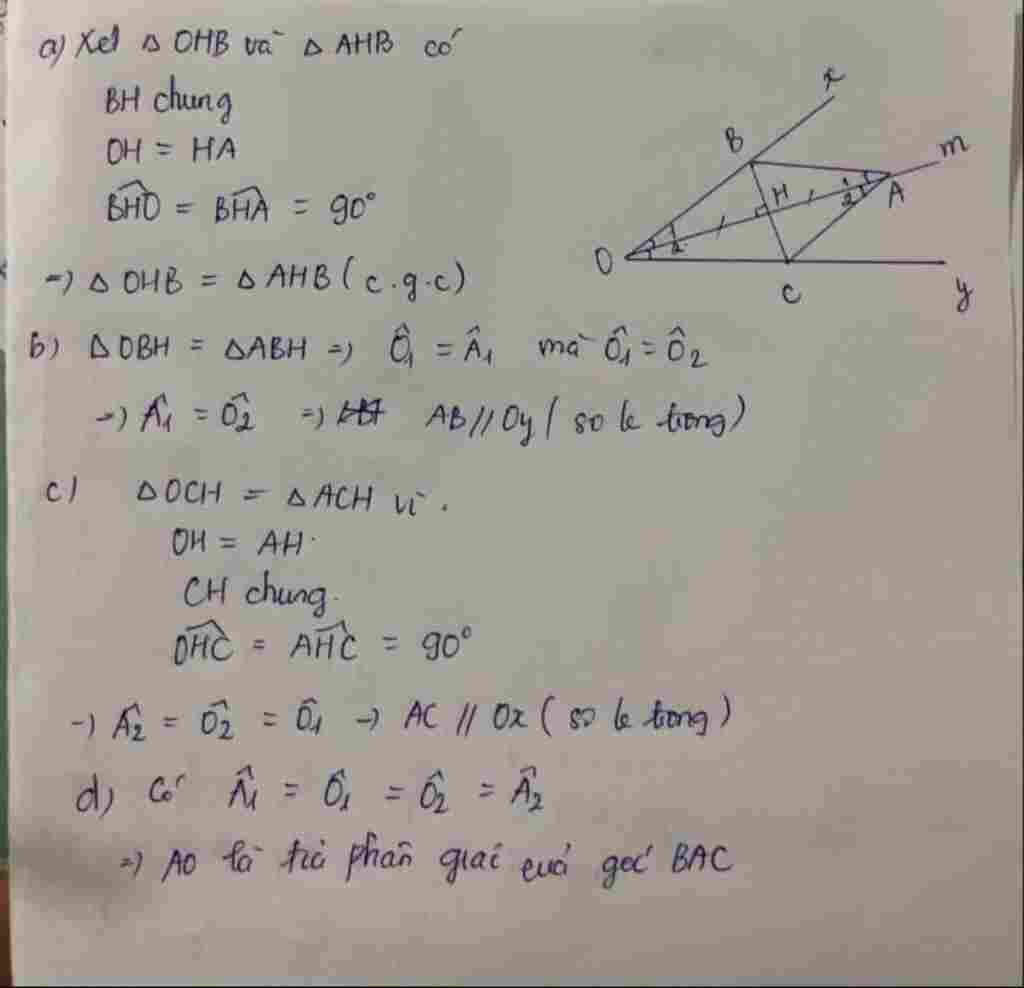 a) Xét △ OHB và △ AHB có
BH chung
OH = HA
$\widehat{BHO}$ = $\widehat{BHA}$ = 90°
=) △ OHB = △ AHB ( c.g.c)
b) △OBH = △ABH =) $\hat{O}_1$ = $\hat{A}_1$ mà $\hat{O}_1$ = $\hat{O}_2$
=) $\hat{A}_1$ = $\hat{O}_2$ =) AB // Oy ( so le trong)
c) △OCH = △ACH vì .
OH = AH.
CH chung.
$\widehat{OHC}$ = $\widehat{AHC}$ = 90°
=) $\hat{A}_2$ = $\hat{O}_2$ = $\hat{O}_1$ =) AC // Ox ( so le trong)
d) Có $\hat{A}_1$ = $\hat{O}_1$ = $\hat{O}_2$ = $\hat{A}_2$
=) AO là tia phân giác của góc BAC
x
B
m
H
1
A
2
1
2
O
C
y